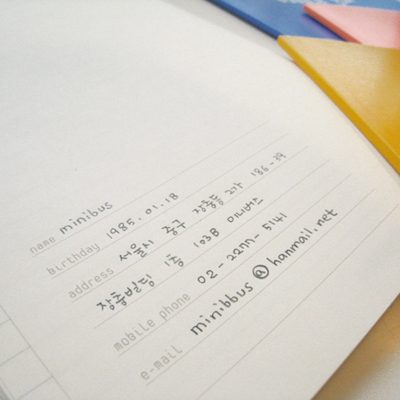 name minibus
birthday 1985.01.18
address 서울시 중구 장충동 2가 186-39
장충빌딩 1층 103B 미니버스
mobile phone 02-2277-5141
e-mail minibbus@hanmail.net